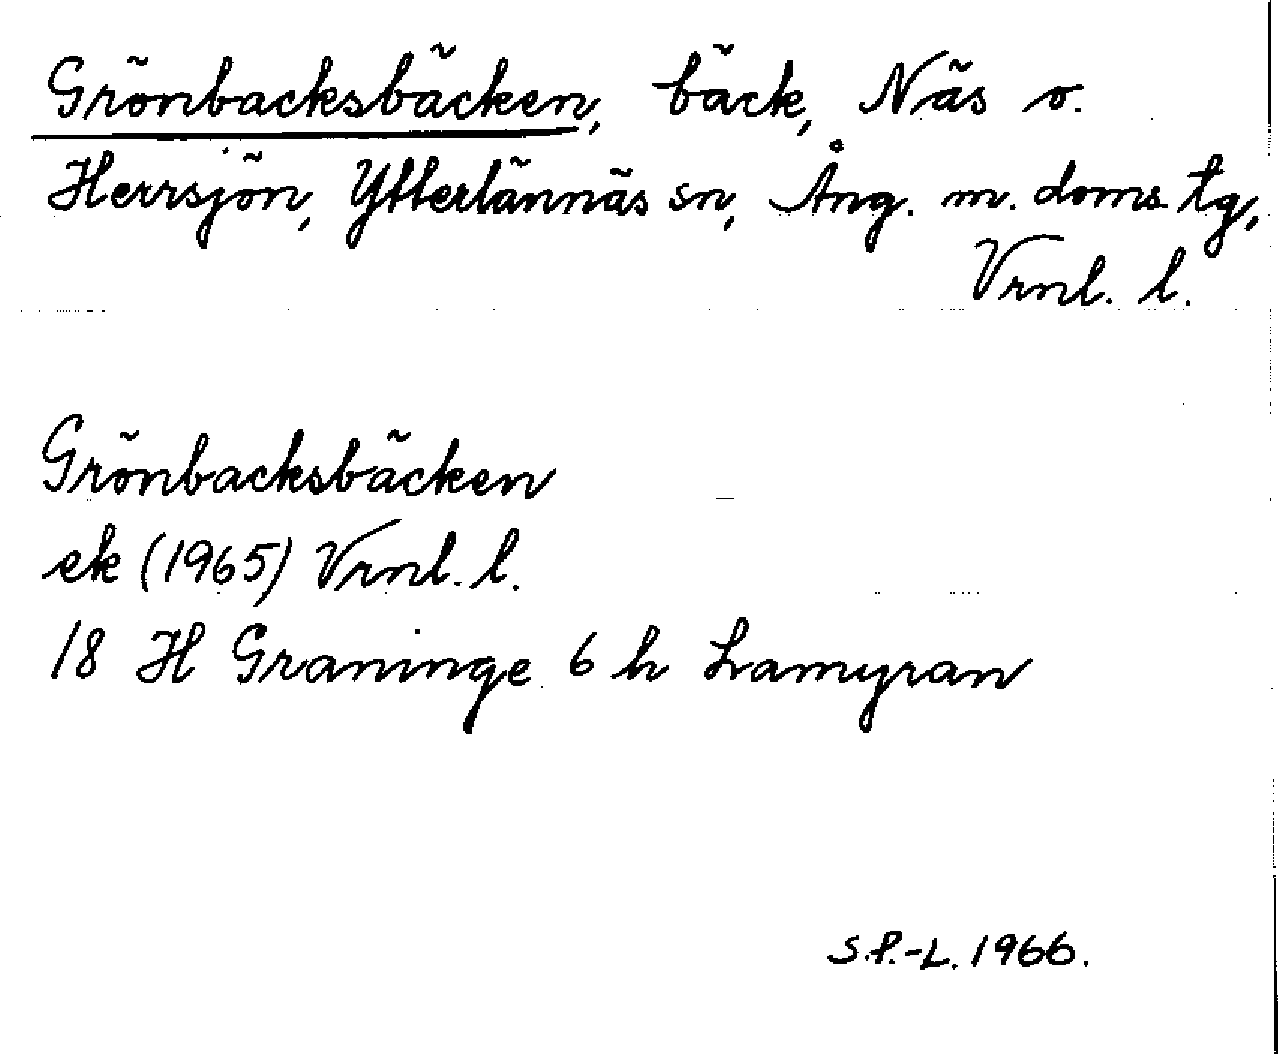 Grönbacksbäcken, bäck, Näs o.
Herrsjön, Ytterlännäs sn, Ång. m. doms. tg,
Vrnl. l.
Grönbacksbäcken
ek (1965) Vrnl. l.
18 H Graninge 6 h Lamyran
S.P.-L. 1966.